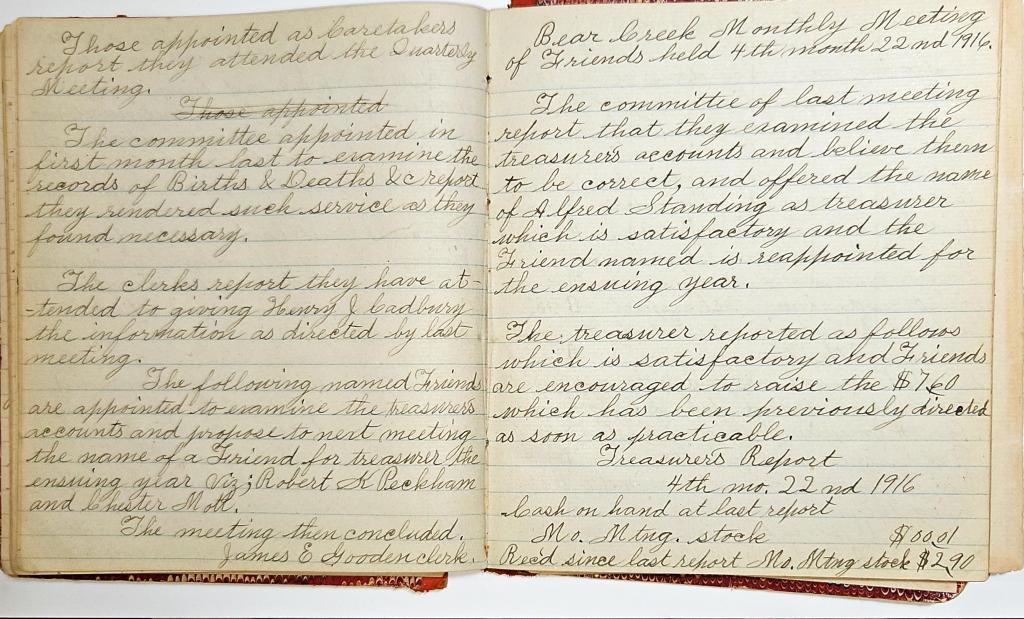 Those appointed as Caretakers
report they attended the Quarterly
Meeting.
Those appointed
The committee appointed in
first month last to examine the
records of Births & Deaths &c report
they rendered such service as they
found necessary.
The clerks report they have at-
-tended to giving Henry J Cadbury
the information as directed by last
meeting.
The following named Friends
are appointed to examine the treasurer's
accounts and propose to next meeting
the name of a Friend for treasurer the
ensuing year Viz; Robert K Peckham
and Chester Mott.
The meeting then concluded.
James E Gooden clerk.
Bear Creek Monthly Meeting
of Friends held 4th month 22nd 1916.
The committee of last meeting
report that they examined the
treasurer's accounts and believe them
to be correct, and offered the name
of Alfred Standing as treasurer
which is satisfactory and the
Friend named is reappointed for
the ensuing year.
The treasurer reported as follows
which is satisfactory and Friends
are encouraged to raise the $7.60
which has been previously directed
as soon as practicable.
Treasurer's Report
4th mo. 22nd 1916
Cash on hand at last report
Mo. Mtng. stock $00.01
Rec'd since last report Mo. Mtng stock $2.90